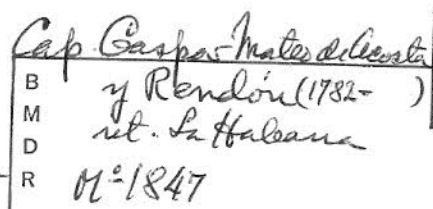 Cap. Gaspar Mateo de Acosta
B y Rendón (1782- )
M ret. La Habana
D
R Mº 1847